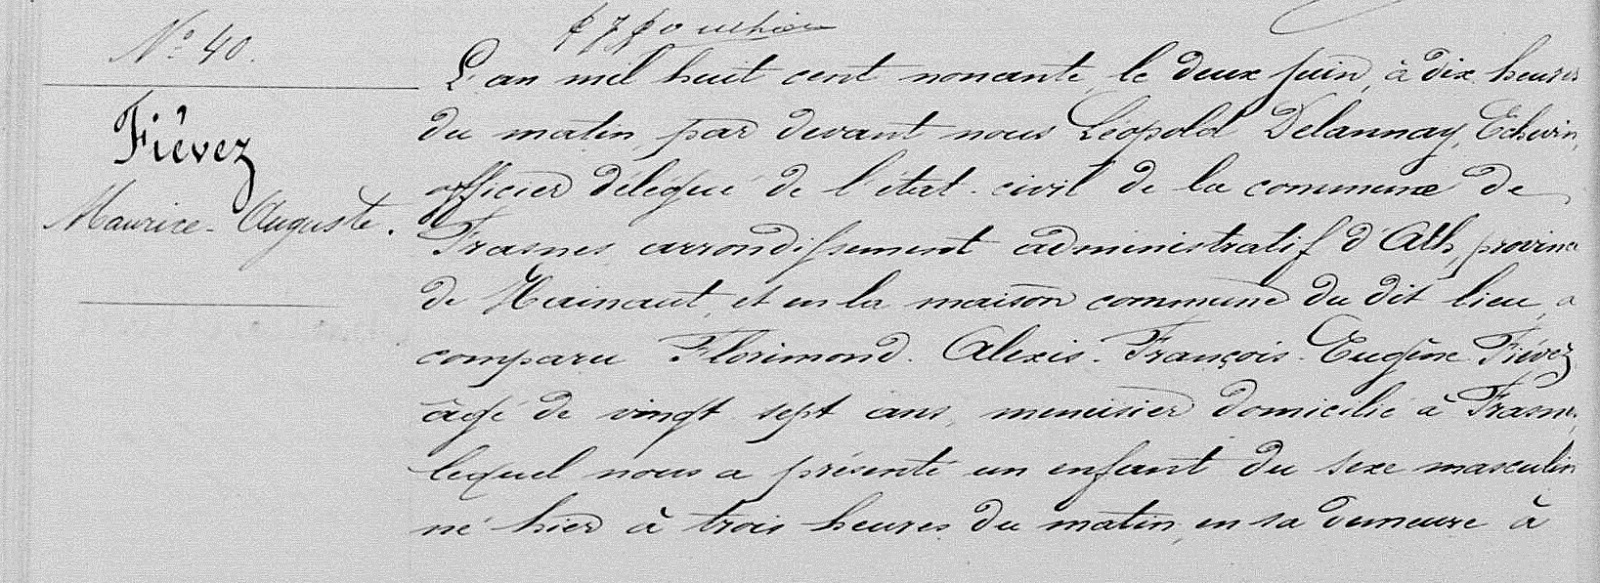 N° 40.
Fiévez
Maurice-Auguste.
L'an mil huit cent nonante, le deux juin, à dix heures
du matin, par devant nous Léopold Delannay, Echevin,
officier délégué de l'état-civil de la commune de
Frasnes arrondissement administratif d'Ath, province
de Hainaut, et en la maison commune du dit lieu, a
comparu Florimond-Alexis-François-Eugène Fiévez
âgé de vingt sept ans, menuisier domicilié à Frasnes,
lequel nous a présenté un enfant du sexe masculin
né hier à trois heures du matin, en sa demeure à